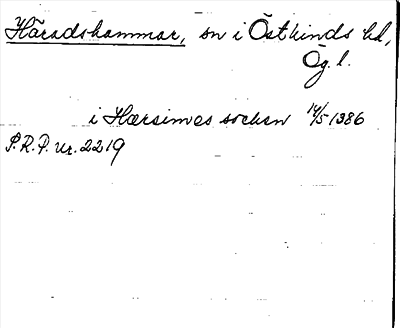 Häradshammar, sn i Östkinds hd,
Ög. l.
i Hærsimes sochen 14/5 1386
S.R.P. nr. 2219